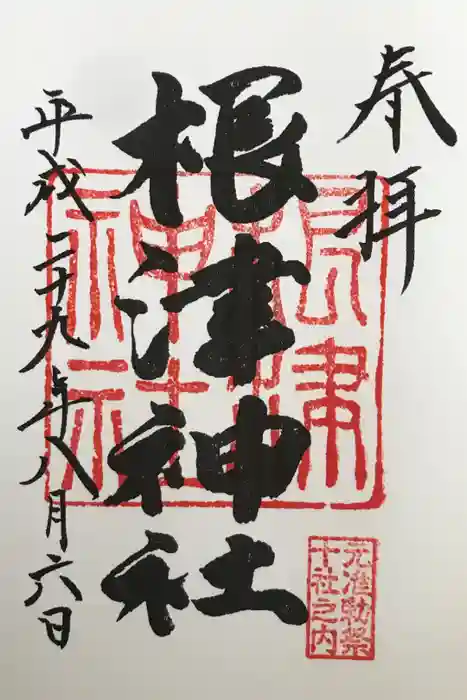 奉拝
根津神社
平成二十九年八月六日
根津神社
元准勅祭
十社之内